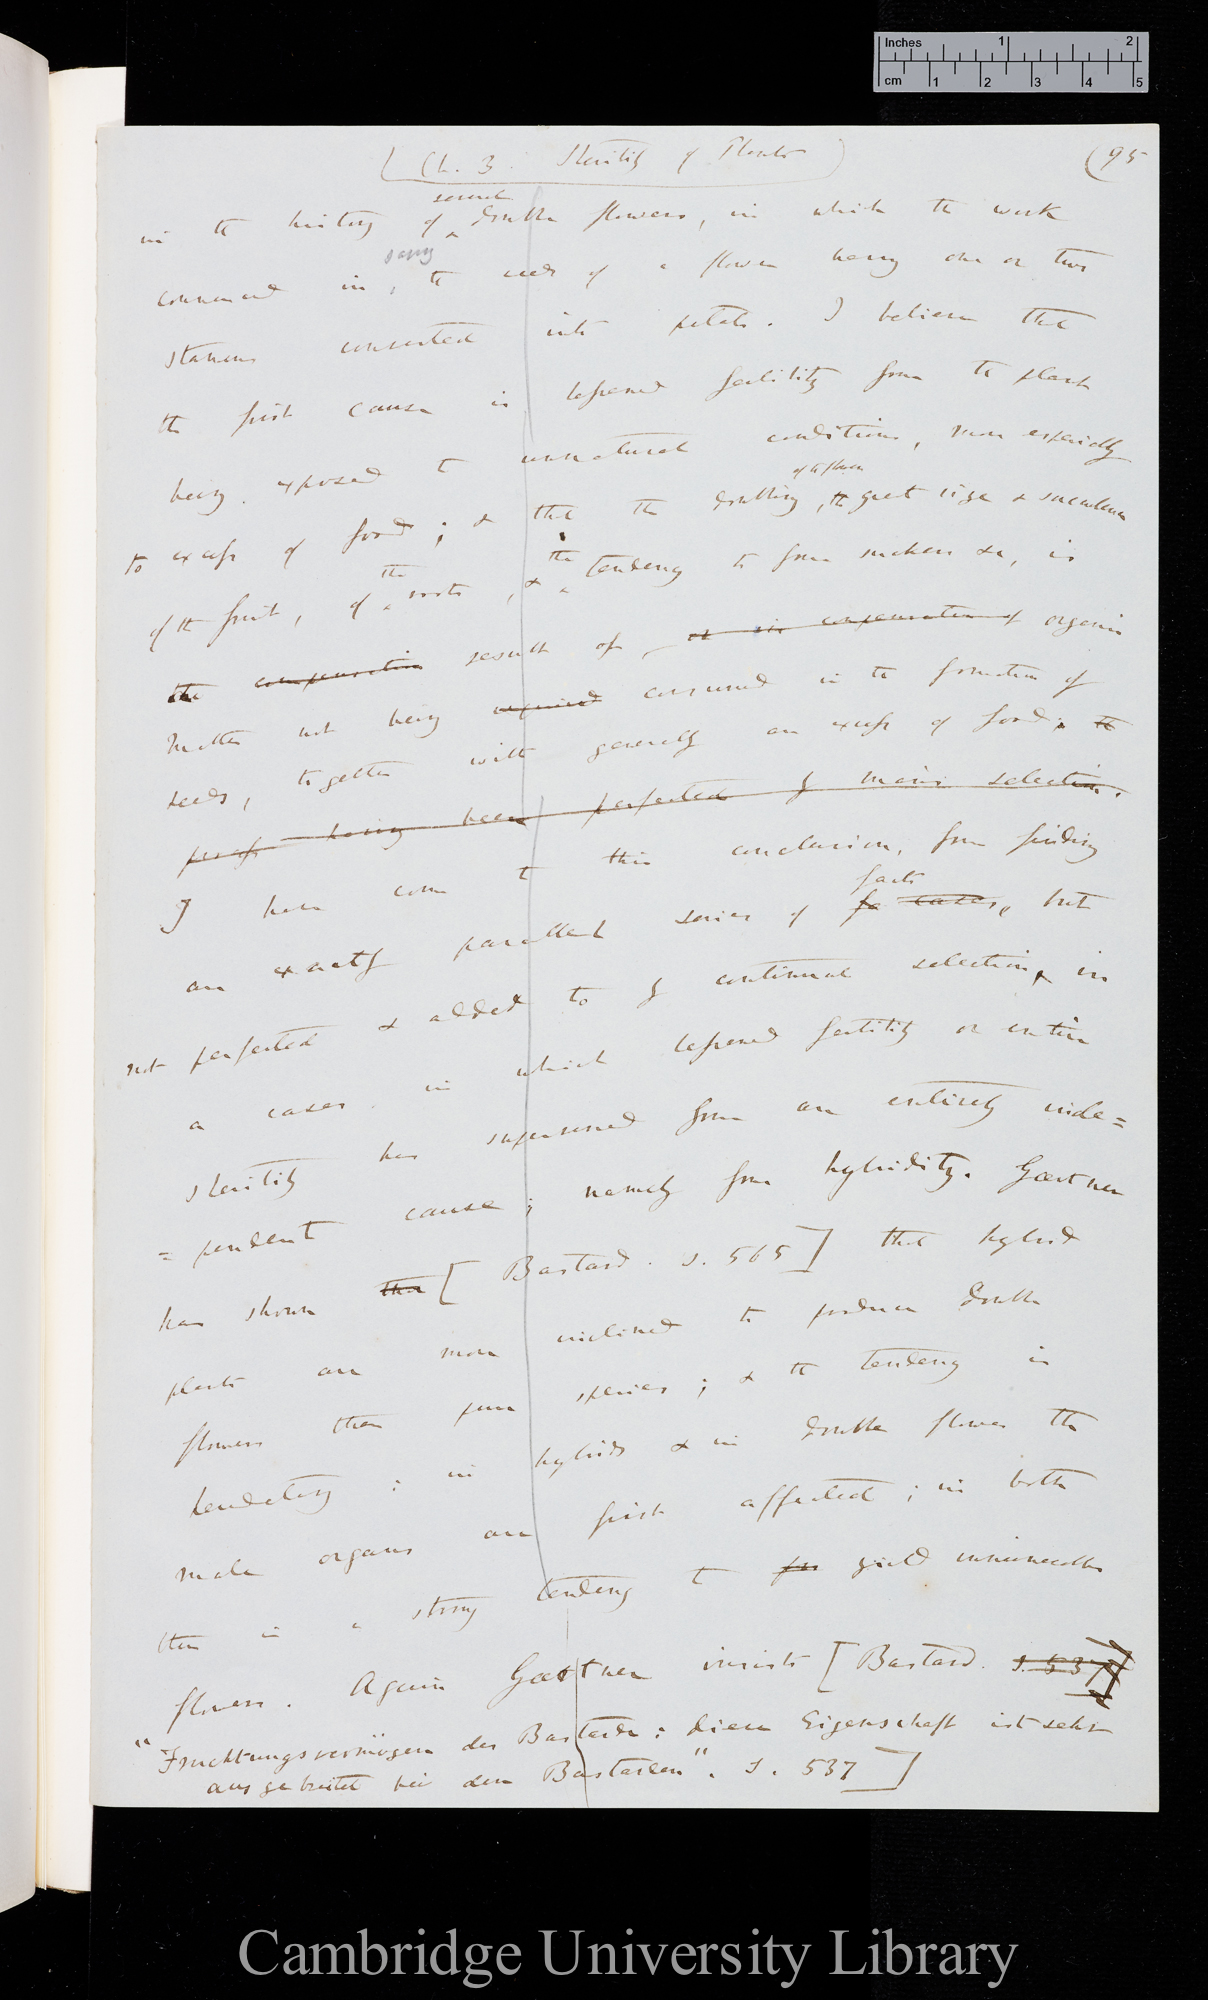 Inches 1 2
cm 1 2 3 4 5
(Ch. 3. Sterility of Plants) (95
in the history of several double flowers, in which the work
commenced in, saving the seeds of a flower having one or two
stamens converted into petals. I believe that
the first cause is lessened fertility from the plant
being exposed to unnatural conditions, more especially
to excess of food; & that the doubling of the flower, the great size & succulence
of the fruit, of the roots, & the tendency to form suckers &c, is
the compensation result of, or in compensation of organic
matter not being required consumed in the formation of
seeds, together with generally an excess of food; the
process having been perfected by man's selection.
I have come to this conclusion, from finding
an exactly parallel series of fa cases, facts but
not perfected & added to by continual selection, in
a cases in which lessened fertility or entire
sterility has supervened from an entirely inde=
=pendent cause; namely from hybridity. Gærtner
has shown that [Bastard. S. 565] that hybrid
plants are more inclined to produce double
flowers than pure species; & the tendency is
hereditary; in hybrids & in double flowers the
male organs are first affected; in both
there is a strong tendency to for yield innumerable
flowers. Again Gærtner insists [Bastard. S. 537]
"Fruchtungsvermögen der Bastarde: diese Eigenschaft ist sehr
ausgebreitet bei den Bastarden". S. 537]
Cambridge University Library